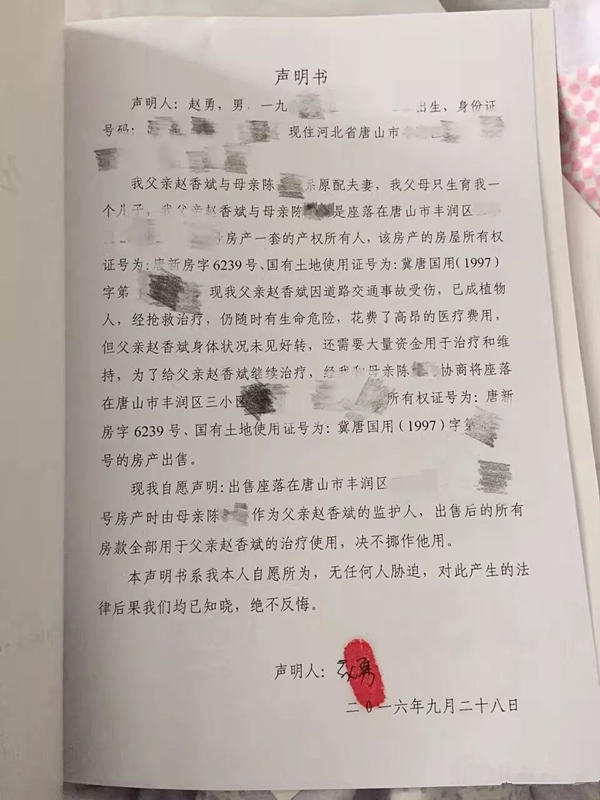 声明书
声明人：赵勇，男，一九 出生，身份证
号码： 现住河北省唐山市
我父亲赵香斌与母亲陈 系原配夫妻，我父母只生育我一
个儿子，我父亲赵香斌与母亲陈 是座落在唐山市丰润区
号房产一套的产权所有人，该房产的房屋所有权
证号为：唐新房字6239号、国有土地使用证号为：冀唐国用（1997）
字第 现我父亲赵香斌因道路交通事故受伤，已成植物
人，经抢救治疗，仍随时有生命危险，花费了高昂的医疗费用，
但父亲赵香斌身体状况未见好转，还需要大量资金用于治疗和维
持，为了给父亲赵香斌继续治疗，经我和母亲陈 协商将座落
在唐山市丰润区三小区 所有权证号为：唐新
房字6239号、国有土地使用证号为：冀唐国用（1997）字第
号的房产出售。
现我自愿声明：出售座落在唐山市丰润区
号房产时由母亲陈 作为父亲赵香斌的监护人，出售后的所有
房款全部用于父亲赵香斌的治疗使用，决不挪作他用。
本声明书系我本人自愿所为，无任何人胁迫，对此产生的法
律后果我们均已知晓，绝不反悔。
声明人：赵勇
二0一六年九月二十八日